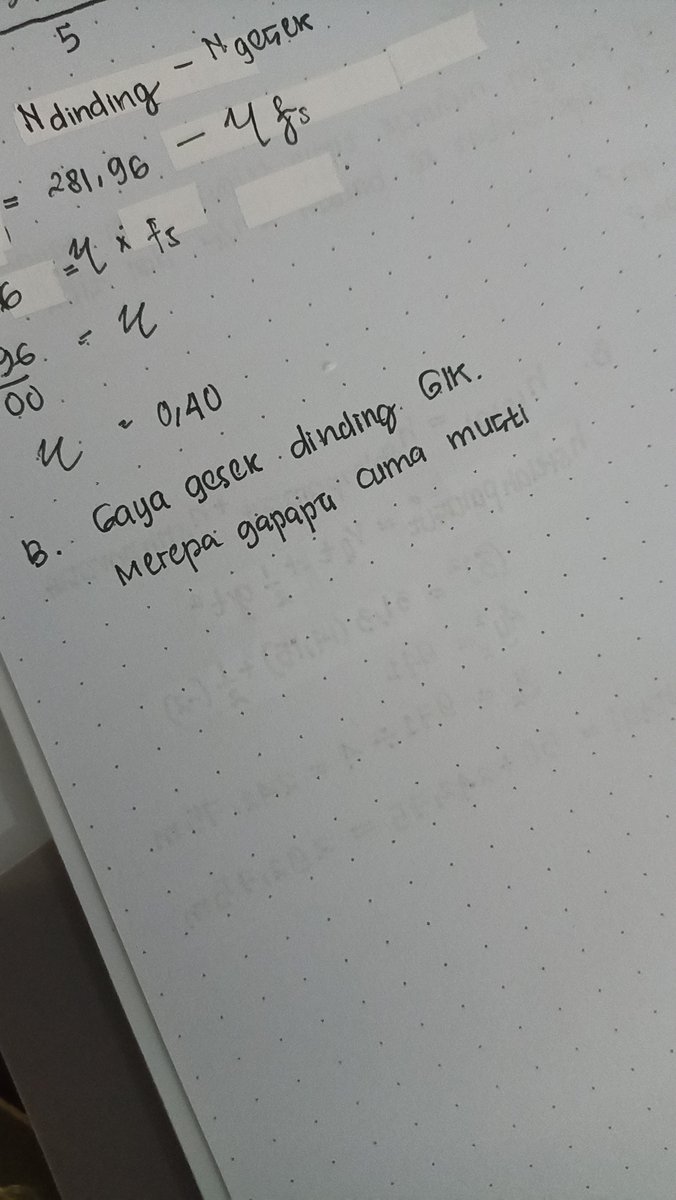 5
N dinding - N gesek
= 281,96 - μ fs
6 = μ x fs
96 = μ
00
μ = 0,40
B. Gaya gesek dinding GIK.
Merepa gapapa cuma musti